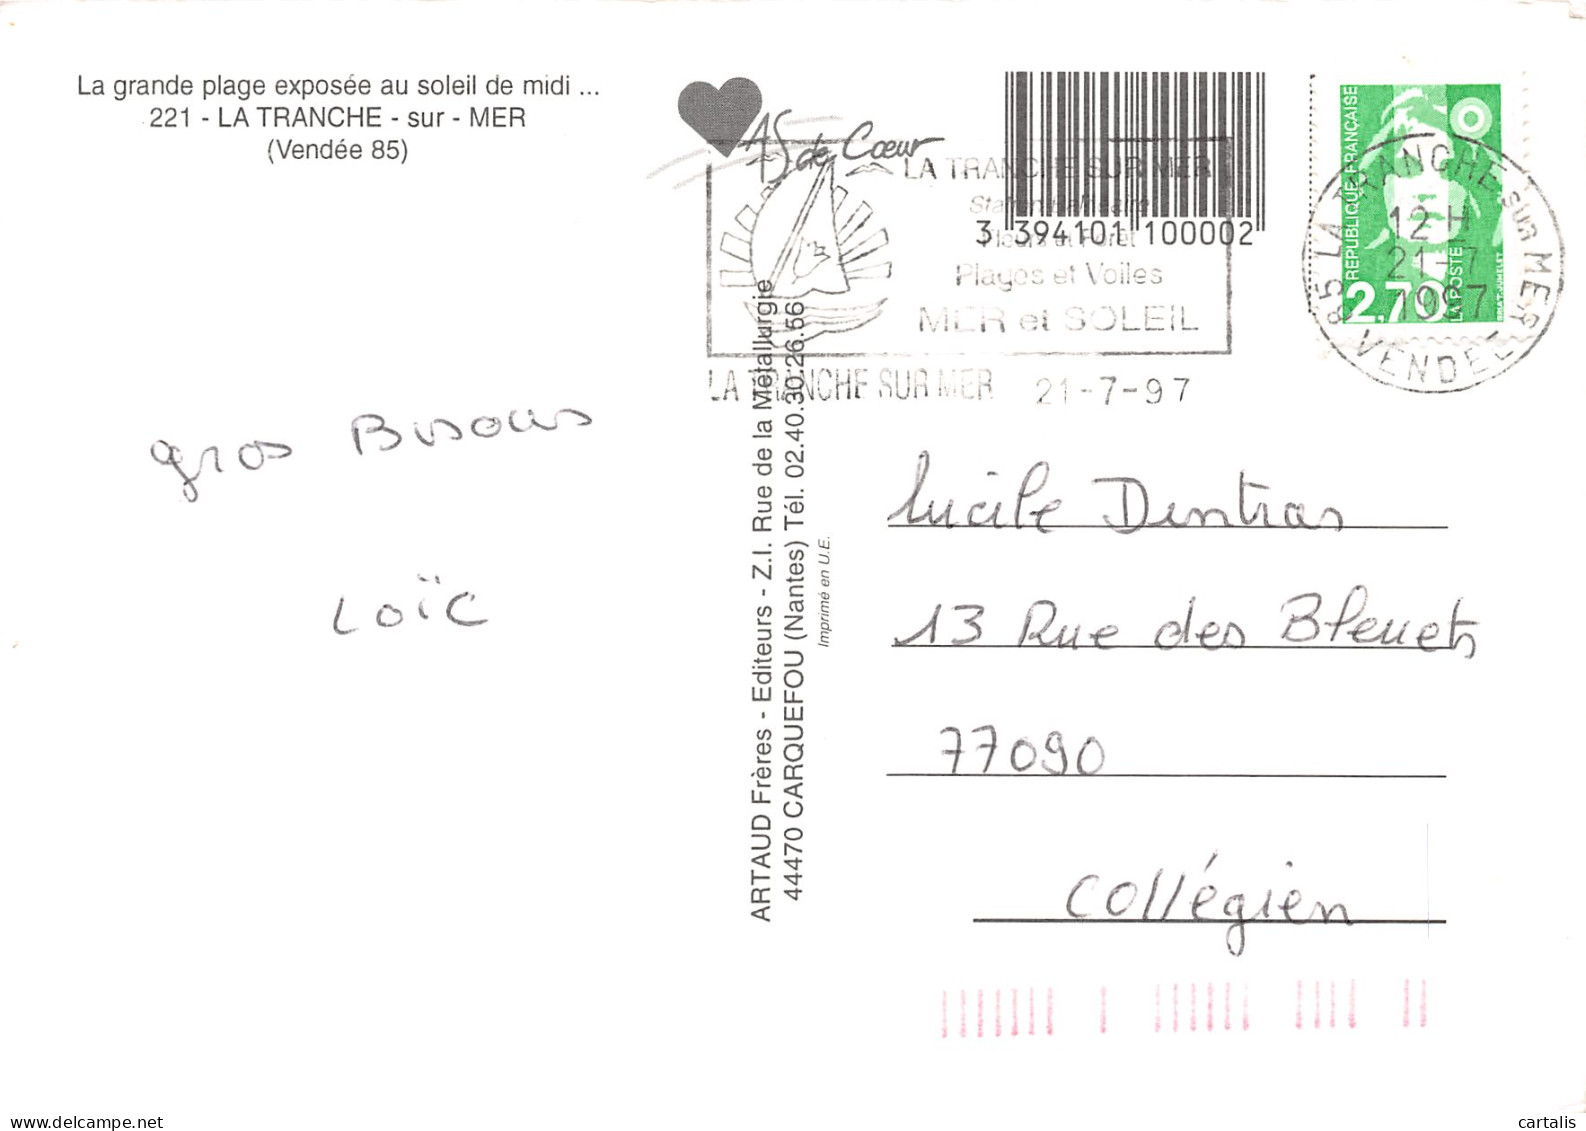 La grande plage exposée au soleil de midi ...
221 - LA TRANCHE - sur - MER
(Vendée 85)
AS de Cœur
LA TRANCHE SUR MER
Station Balnéaire
Fleurs et Forêt
Plages et Voiles
MER et SOLEIL
LA TRANCHE SUR MER 21-7-97
3 394101 100002
RÉPUBLIQUE FRANÇAISE
2,70
LA POSTE
85 LA TRANCHE SUR MER
12 H
21-7
1997
VENDEE
gros Bisous
Loïc
ARTAUD Frères - Editeurs - Z.I. Rue de la Métallurgie
44470 CARQUEFOU (Nantes) Tél. 02.40.30.26.56
Imprimé en U.E.
Lucile Dentras
13 Rue des Bleuets
77090
Collégien
delcampe.net
cartalis